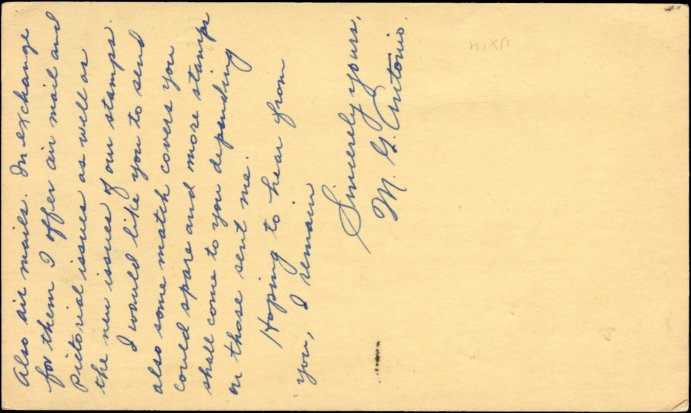 Also air mails. In exchange
for them I offer air mail and
pictorial issues as well as
the new issues of our stamps.
I would like you to send
also some match covers you
could spare and more stamps
shall come to you depending
on those sent me.
Hoping to hear from
you, I remain
Sincerely yours,
M. G. Antonio.